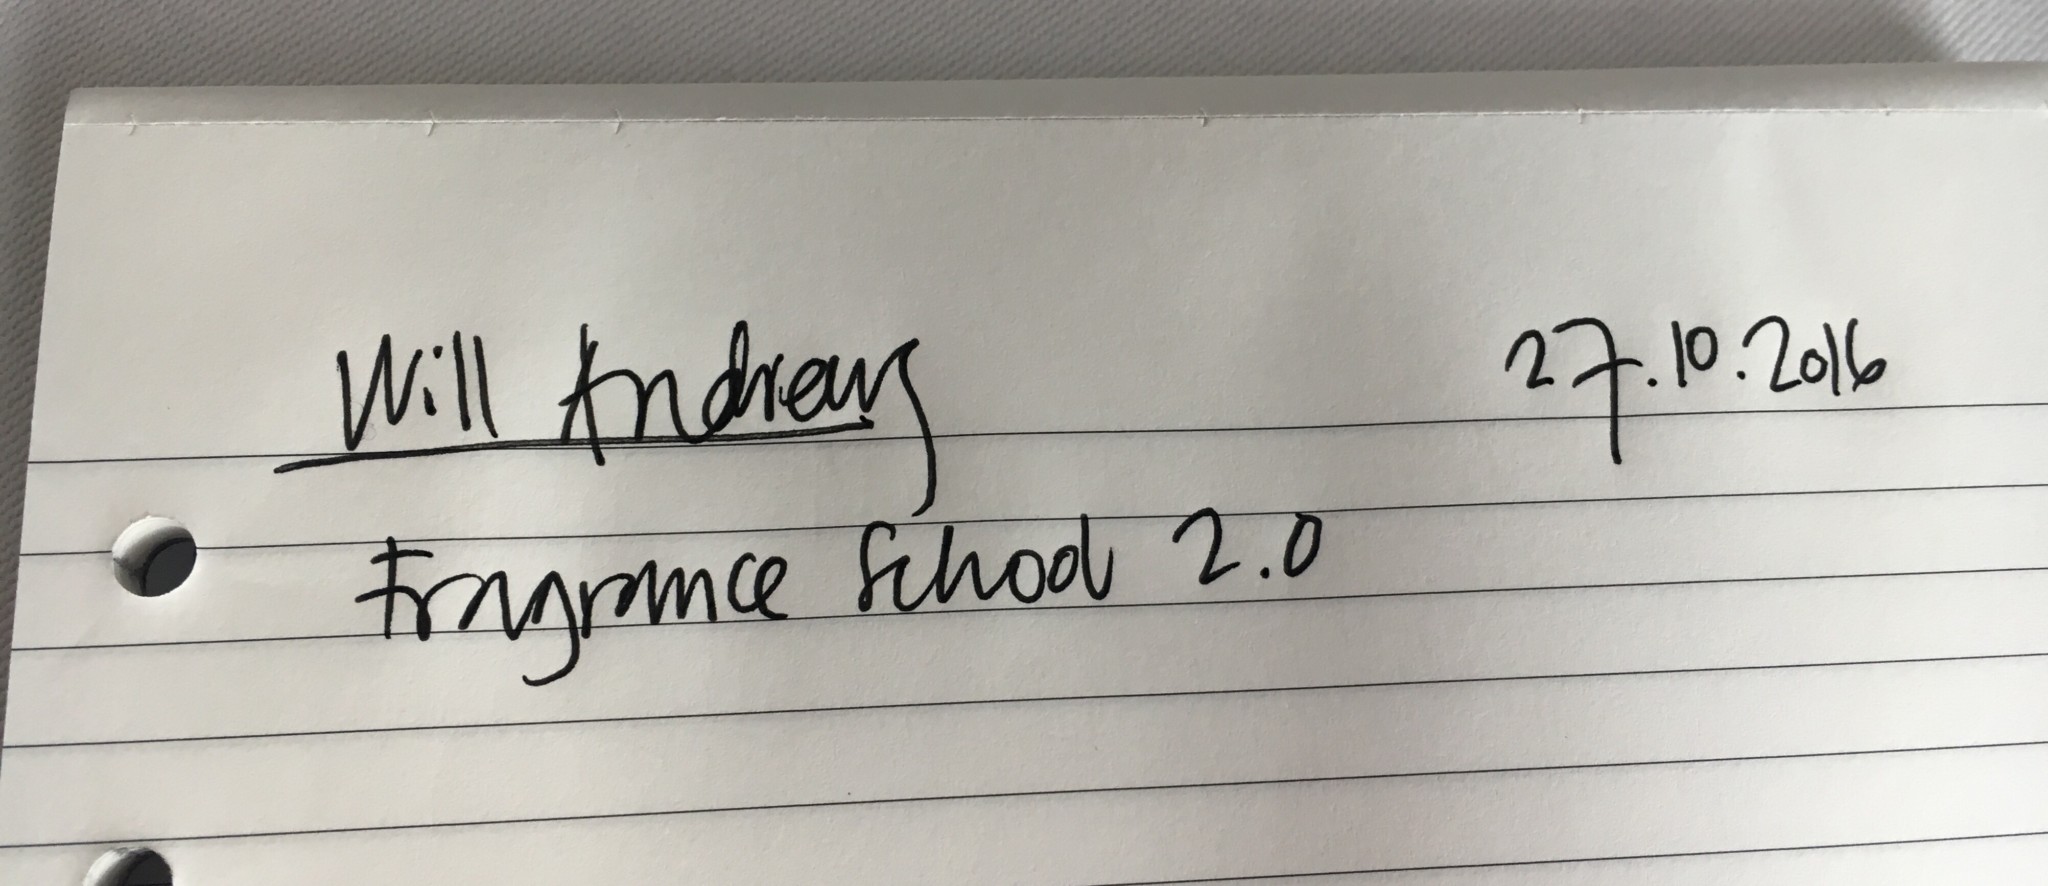 Will Andrews 27.10.2016
Fragrance School 2.0